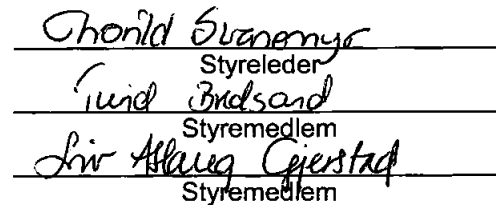 Thorild Svanemyr
Styreleder
Turid Bredsand
Styremedlem
Liv Aslaug Gjerstad
Styremedlem